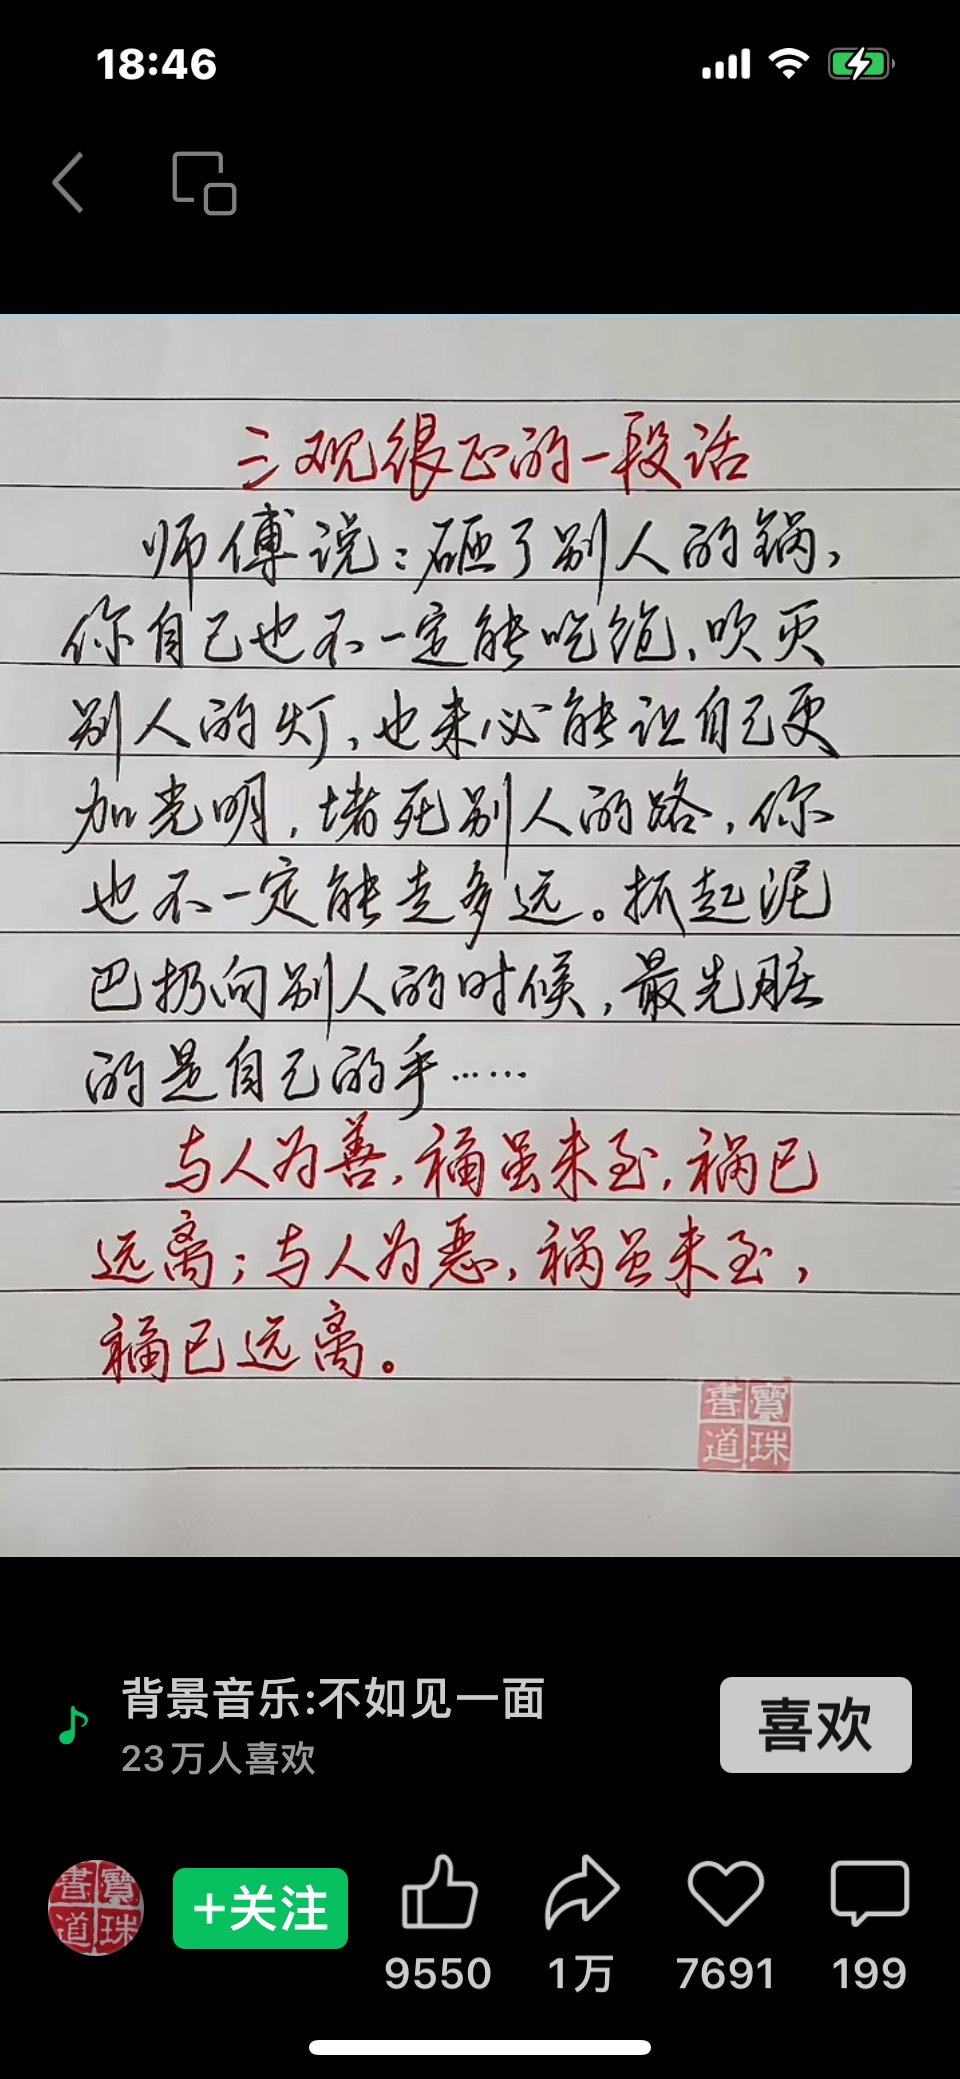 18:46
三观很正的一段话
师傅说：砸了别人的锅，
你自己也不一定能吃饱，吹灭
别人的灯，也未必能让自己更
加光明，堵死别人的路，你
也不一定能走多远。抓起泥
巴扔向别人的时候，最先脏
的是自己的手……
与人为善，福虽未至，祸已
远离；与人为恶，祸虽未至，
福已远离。
書寶
道珠
背景音乐:不如见一面
23万人喜欢
喜欢
書寶
道珠
+关注
9550
1万
7691
199